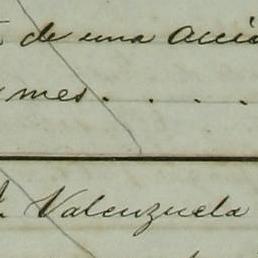 de una acció
mes. . . . .
Valenzuela